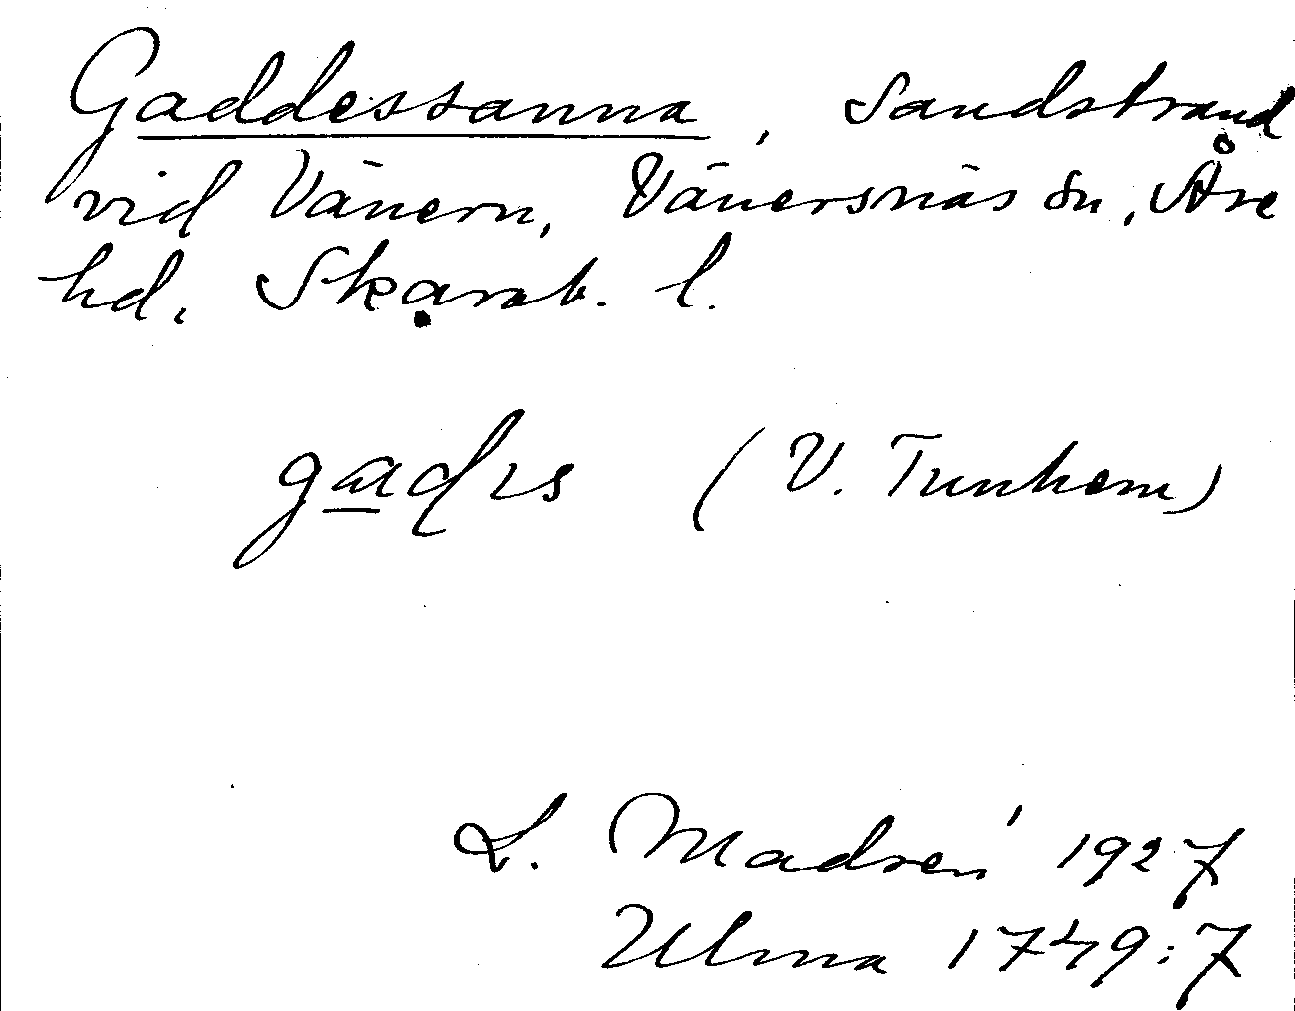 Gaddessanna, sandstrand
vid Vänern, Vänersnäs sn, Åse
hd, Skarab. l.
gadıs (V. Tunhem)
L. Modén 1927
Ulma 1749:7